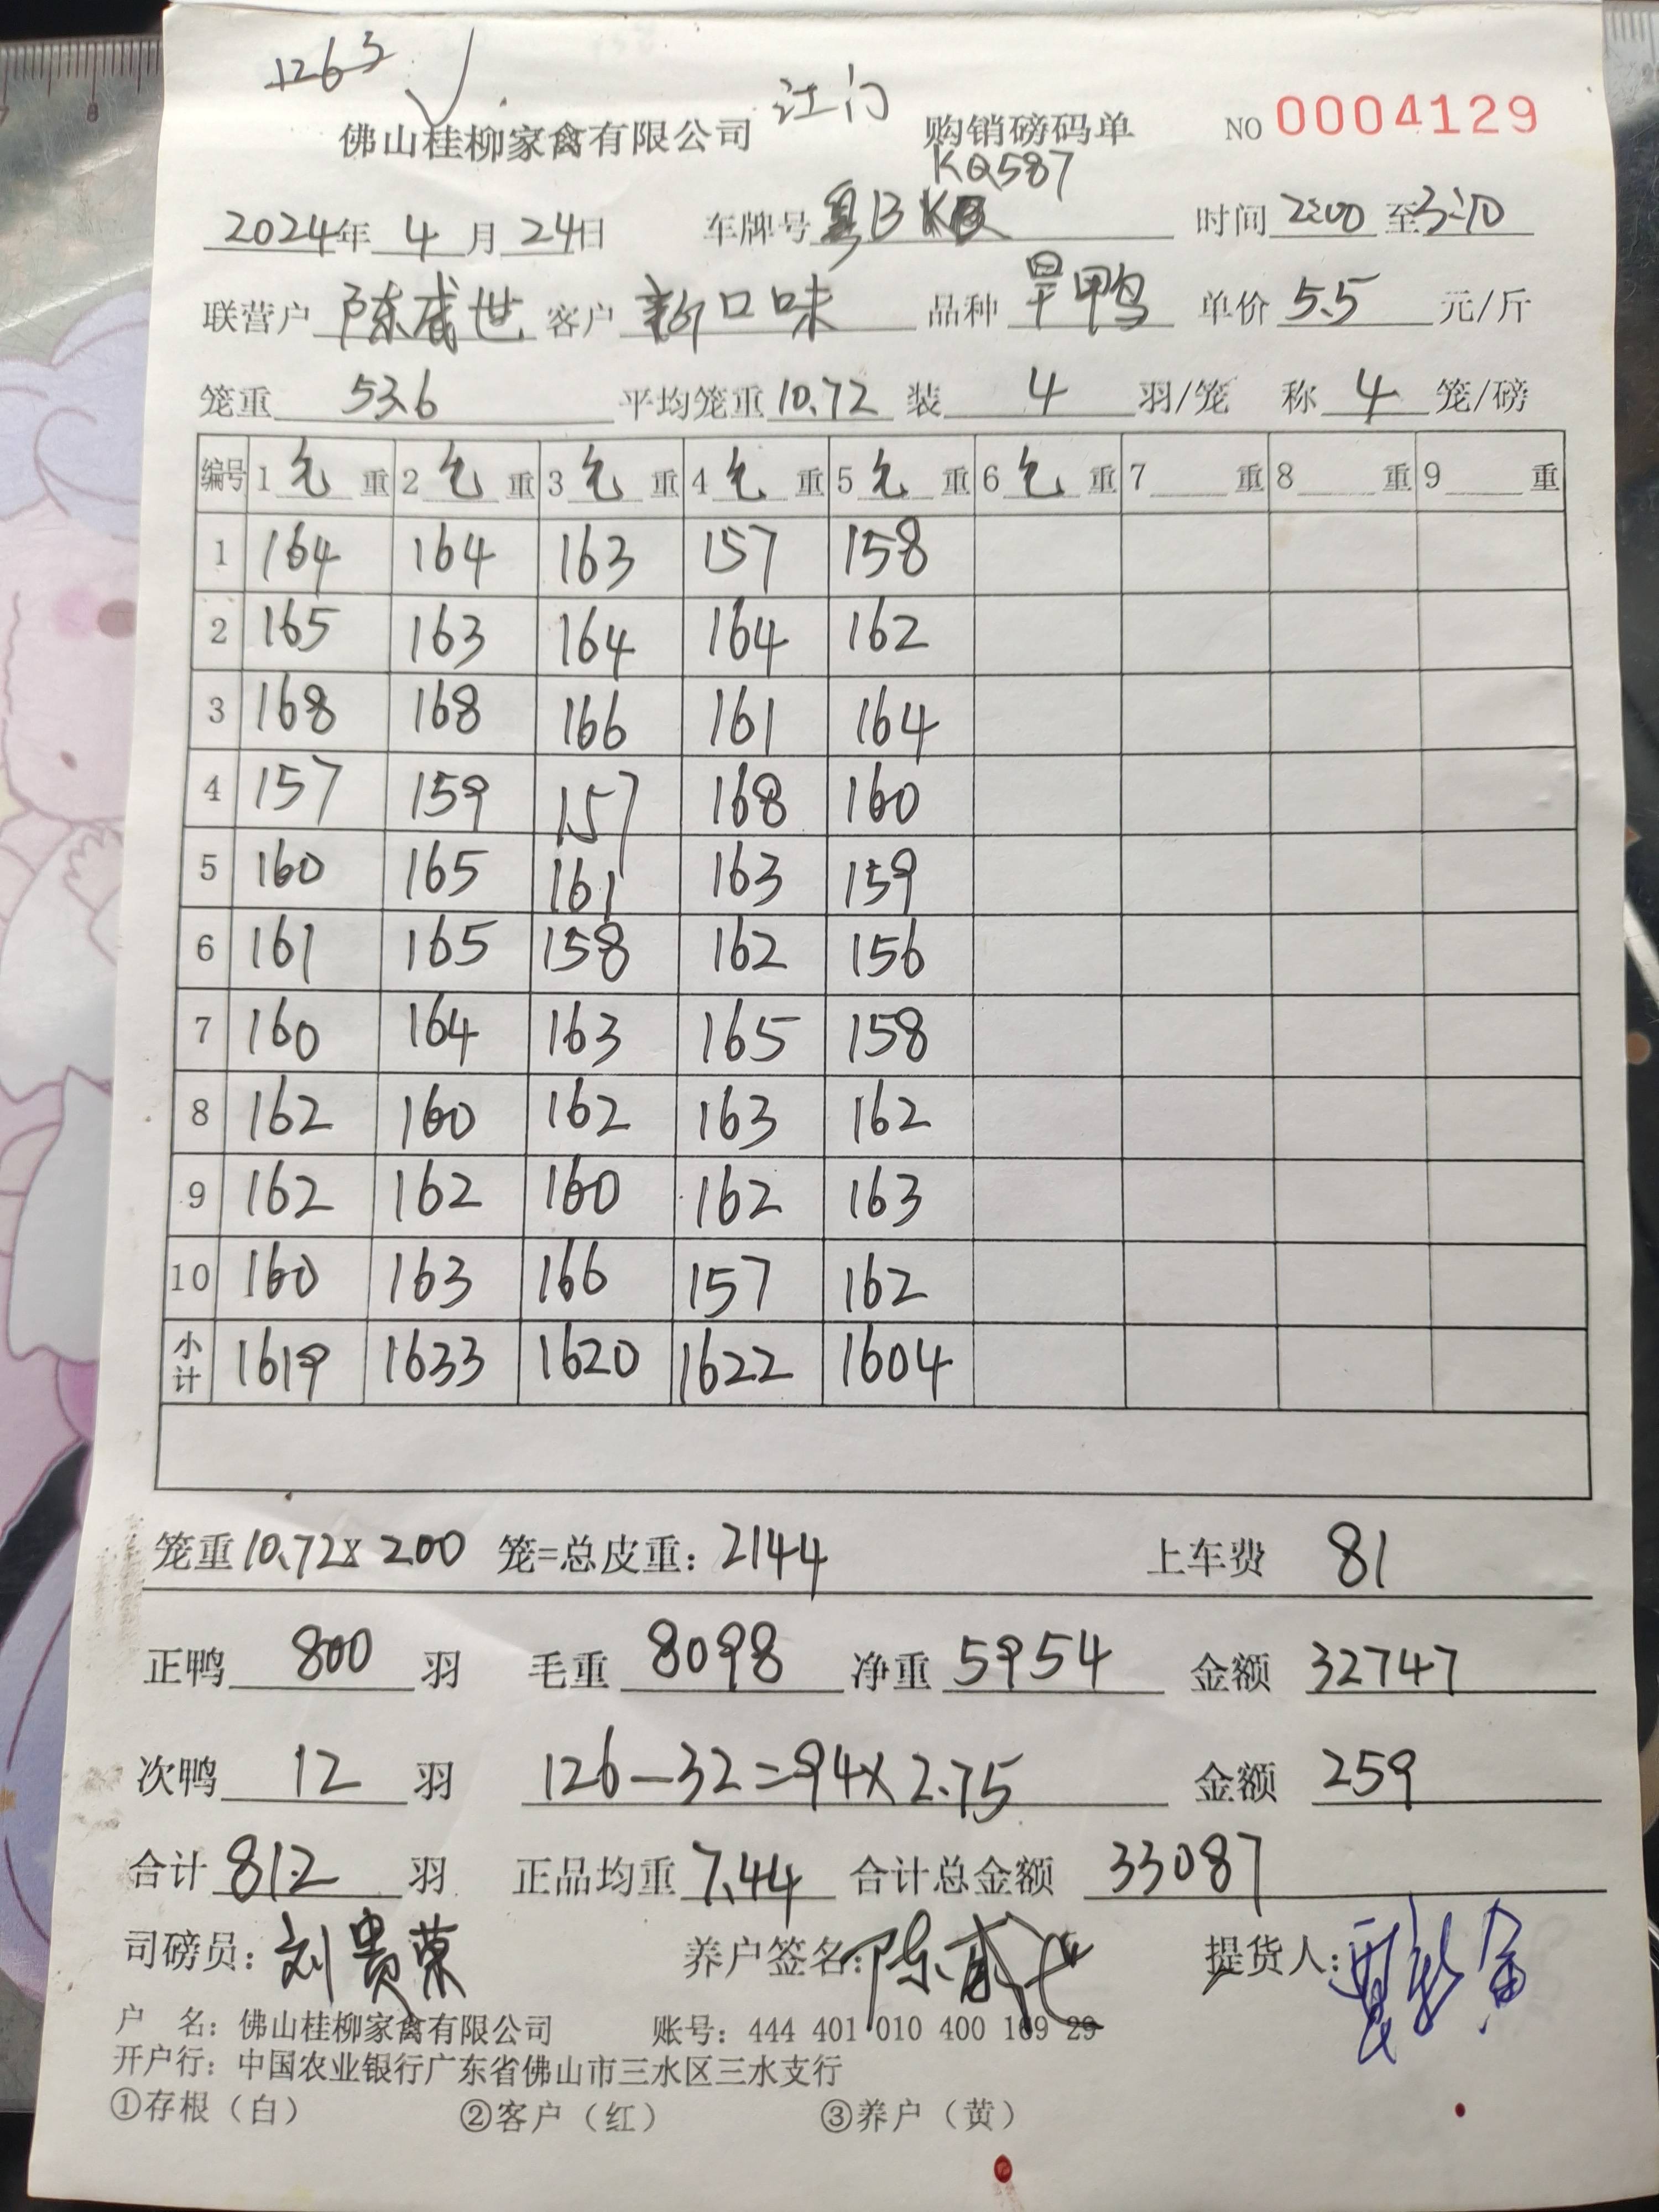 1263
江门
佛山桂柳家禽有限公司 购销磅码单 NO 0004129
KQ587
2024年 4 月 24日 车牌号 粤B 时间 2:00 至 3:10
联营户 陈威世 客户 新口味 品种 旱鸭 单价 5.5 元/斤
笼重 53.6 平均笼重 10.72 装 4 羽/笼 称 4 笼/磅
编号 1 毛 重 2 毛 重 3 毛 重 4 毛 重 5 毛 重 6 毛 重 7 重 8 重 9 重
1 164 164 163 157 158
2 165 163 164 164 162
3 168 168 166 161 164
4 157 159 157 168 160
5 160 165 161 163 159
6 161 165 158 162 156
7 160 164 163 165 158
8 162 160 162 163 162
9 162 162 160 162 163
10 160 163 166 157 162
小计 1619 1633 1620 1622 1604
笼重 10.72 x 200 笼=总皮重: 2144 上车费 81
正鸭 800 羽 毛重 8098 净重 5954 金额 32747
次鸭 12 羽 126-32=94x2.75 金额 259
合计 812 羽 正品均重 7.44 合计总金额 33087
司磅员: 刘贵荣 养户签名: 陈威世 提货人:
户 名: 佛山桂柳家禽有限公司 账号: 444 401 010 400 169 29
开户行: 中国农业银行广东省佛山市三水区三水支行
①存根（白） ②客户（红） ③养户（黄）